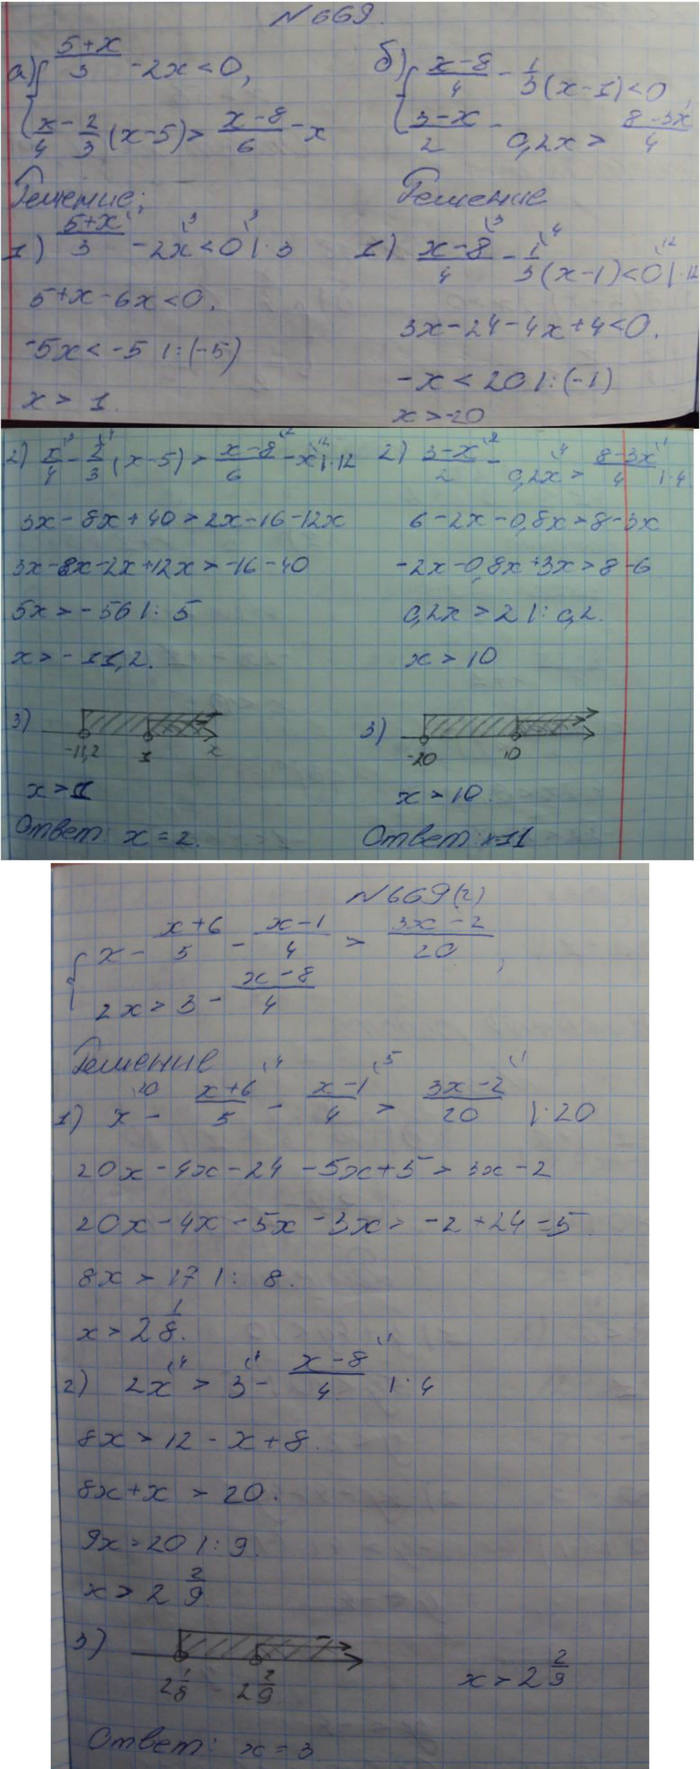 N669.
а) { (5+x)/3 - 2x < 0,
x/4 - 2/3 (x-5) > (x-8)/6 - x
Решение:
1) (5+x)/3 - 2x < 0 |·3
5+x-6x<0.
-5x < -5 |:(-5)
x > 1.
б) { (x-8)/4 - 1/3 (x-1) < 0
(3-x)/2 - 0,2x > (8-3x)/4
Решение
1) (x-8)/4 - 1/3 (x-1) < 0 |·12
3x-24-4x+4<0.
-x < 20 |:(-1)
x > -20
2) x/4 - 2/3 (x-5) > (x-8)/6 - x |·12
3x-8x+40>2x-16-12x
3x-8x-2x+12x>-16-40
5x > -56 |: 5
x > -11,2.
3)
-11,2 1 x
x > 1
Ответ: x = 2.
2) (3-x)/2 - 0,2x > (8-3x)/4 |·4
6-2x-0,8x>8-3x
-2x-0,8x+3x>8-6
0,2x > 2 |: 0,2.
x > 10
3)
-20 10
x > 10.
Ответ: x=11
N669(2)
{ x - (x+6)/5 - (x-1)/4 > (3x-2)/20,
2x > 3 - (x-8)/4
Решение
1) x - (x+6)/5 - (x-1)/4 > (3x-2)/20 |·20
20x-4x-24-5x+5 > 3x-2
20x-4x-5x-3x > -2+24-5.
8x > 17 |: 8.
x > 2 1/8.
2) 2x > 3 - (x-8)/4 |·4
8x > 12 - x + 8.
8x+x > 20.
9x > 20 |: 9.
x > 2 2/9
3)
2 1/8 2 2/9
x > 2 2/9
Ответ: x = 3